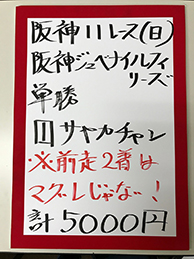 阪神11レース(日)
阪神ジュベナイルフィ
リーズ
単勝
11 サヤカチャン
※前走2着は
マグレじゃな〜!
計5000円